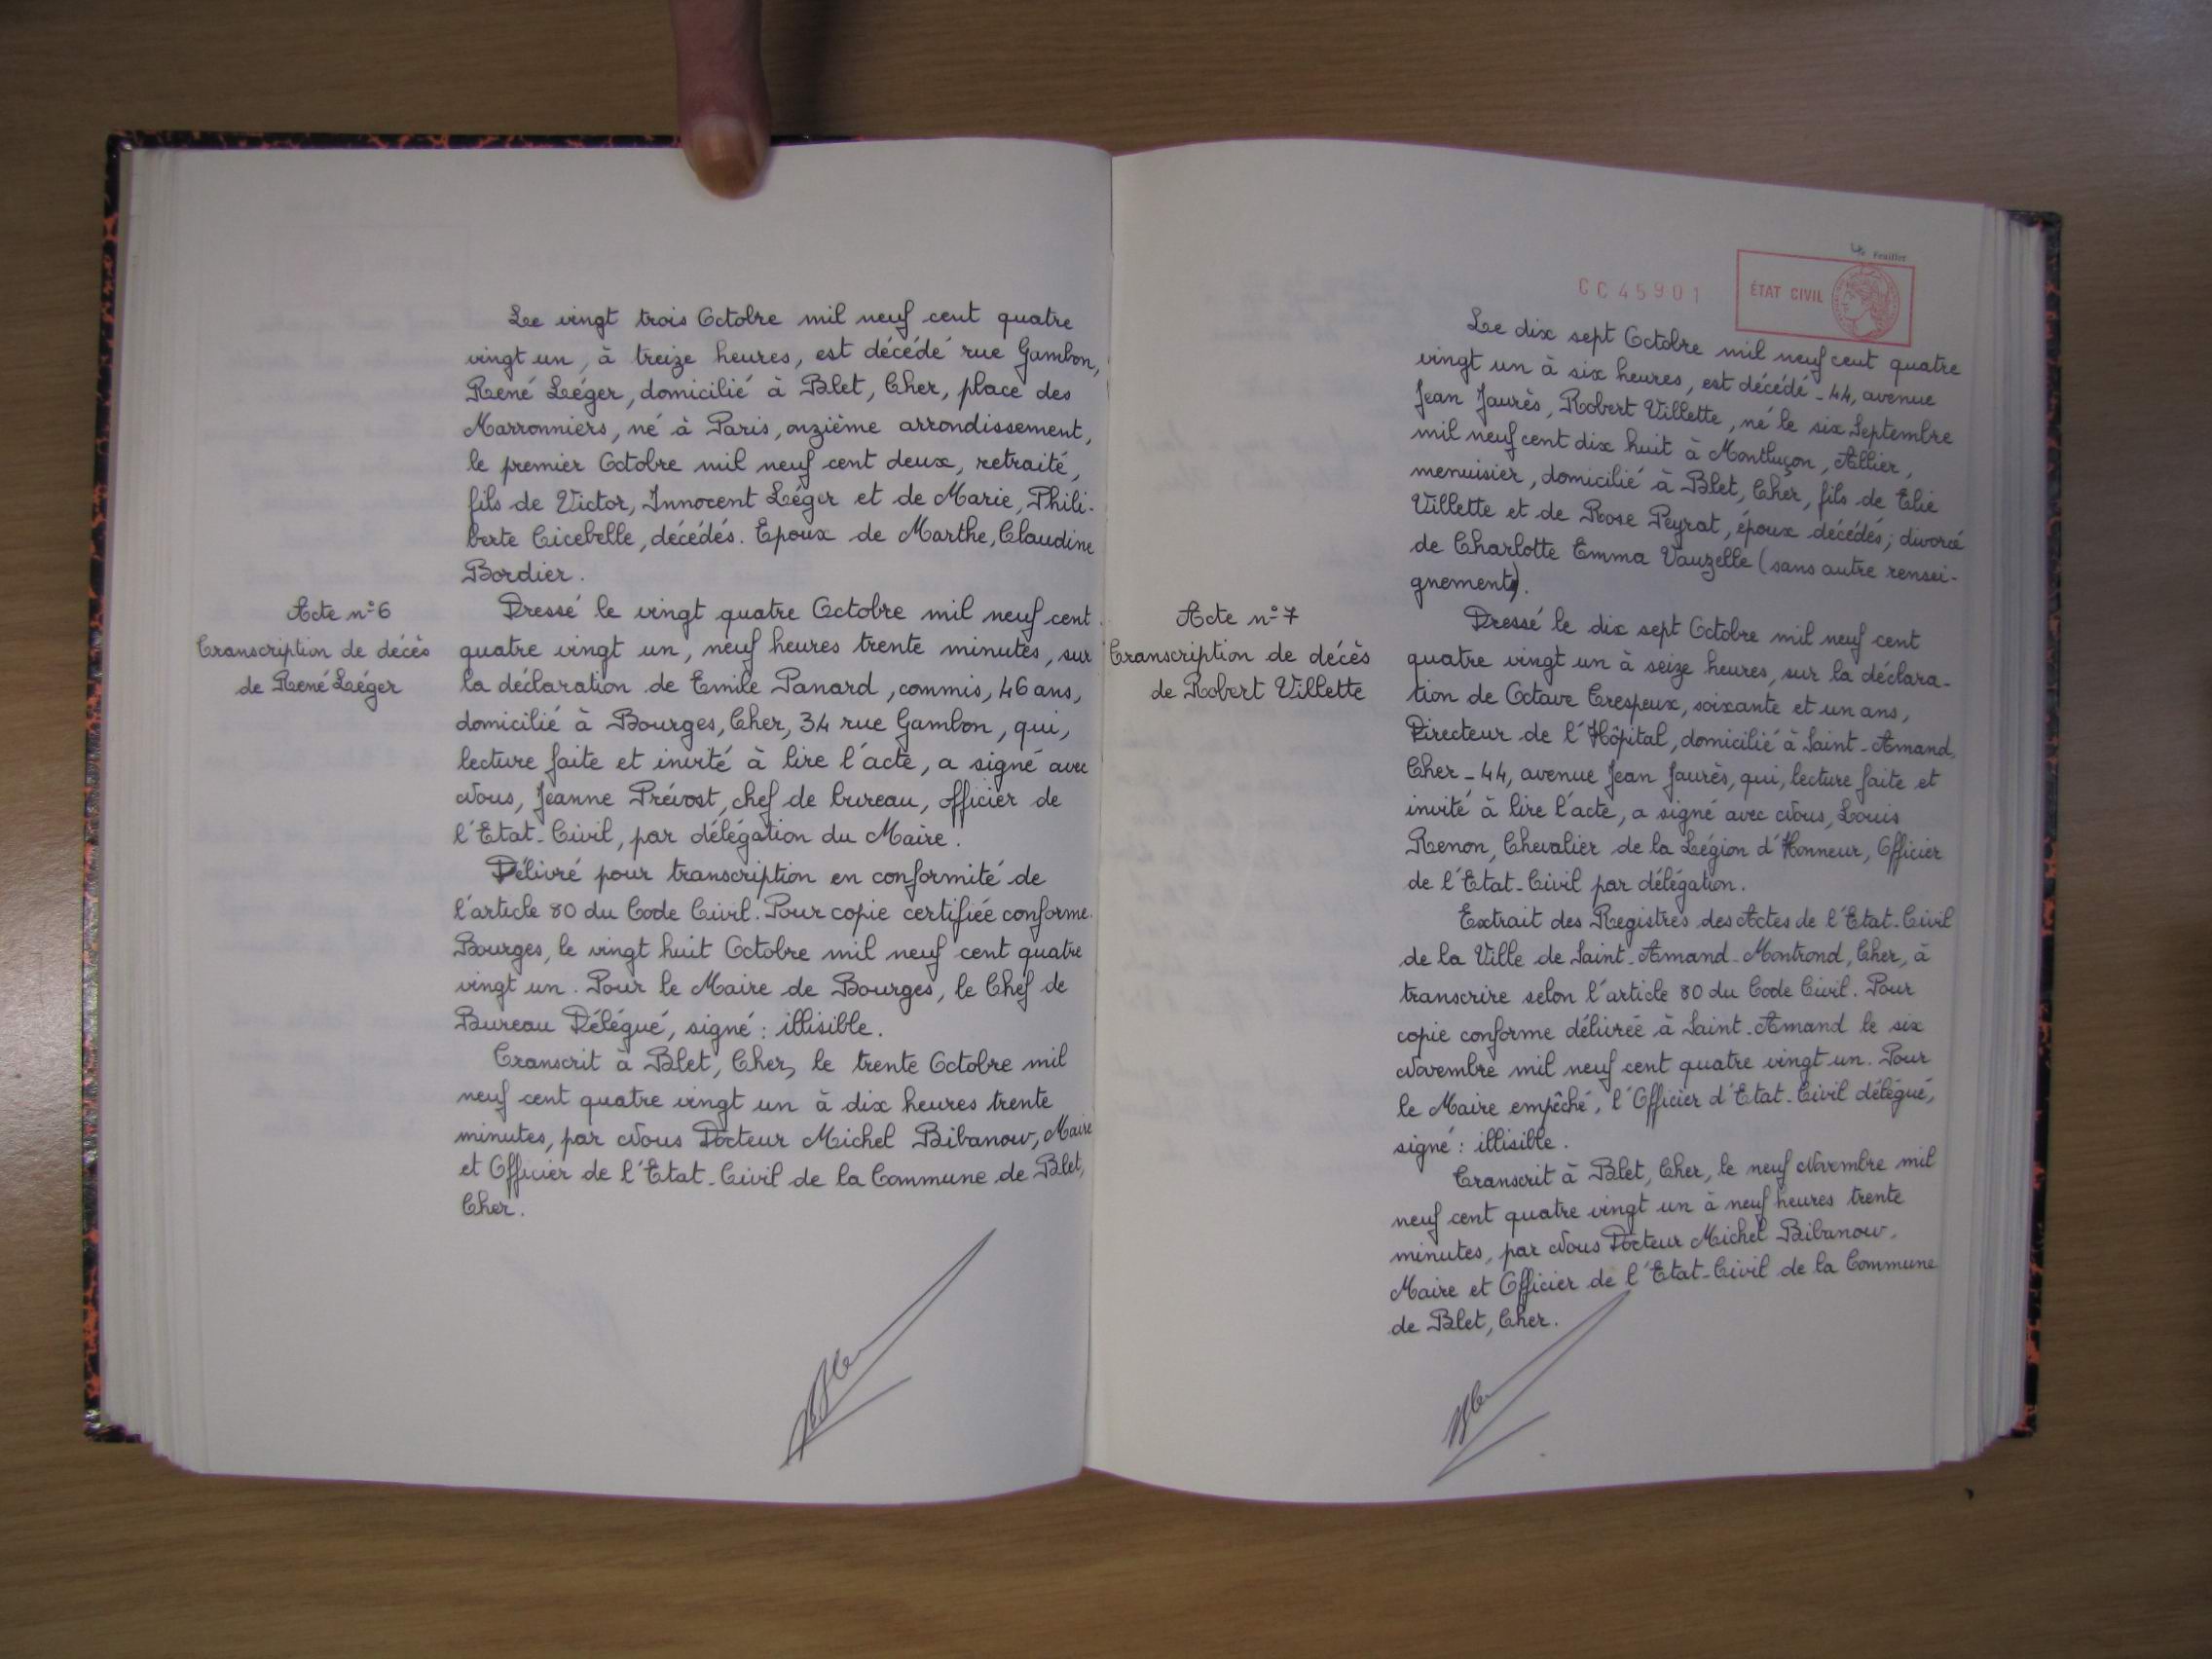 Le vingt trois Octobre mil neuf cent quatre
vingt un, à treize heures, est décédé rue Gambon,
René Léger, domicilié à Blet, Cher, place des
Marronniers, né à Paris, onzième arrondissement,
le premier Octobre mil neuf cent deux, retraité,
fils de Victor, Innocent Léger et de Marie, Phili-
berte Cicebelle, décédés. Epoux de Marthe, Claudine
Bordier.
Acte n° 6
Transcription de décès
de René Léger
Dressé le vingt quatre Octobre mil neuf cent
quatre vingt un, neuf heures trente minutes, sur
la déclaration de Emile Panard, commis, 46 ans,
domicilié à Bourges, Cher, 34 rue Gambon, qui,
lecture faite et invité à lire l'acte, a signé avec
Nous, Jeanne Prévost, chef de bureau, officier de
l'Etat-Civil, par délégation du Maire.
Délivré pour transcription en conformité de
l'article 80 du Code Civil. Pour copie certifiée conforme.
Bourges, le vingt huit Octobre mil neuf cent quatre
vingt un. Pour le Maire de Bourges, le Chef de
Bureau Délégué, signé : illisible.
Transcrit à Blet, Cher, le trente Octobre mil
neuf cent quatre vingt un à dix heures trente
minutes, par Nous Docteur Michel Bibanow, Maire
et Officier de l'Etat-Civil de la Commune de Blet,
Cher.
Feuillet
CC45901
ÉTAT CIVIL
Le dix sept Octobre mil neuf cent quatre
vingt un à six heures, est décédé - 44, avenue
Jean Jaurès, Robert Villette, né le six Septembre
mil neuf cent dix huit à Montluçon, Allier,
menuisier, domicilié à Blet, Cher, fils de Elie
Villette et de Rose Peyrat, époux décédés; divorcé
de Charlotte Emma Vauzelle (sans autre rensei-
gnement).
Acte n° 7
Transcription de décès
de Robert Villette
Dressé le dix sept Octobre mil neuf cent
quatre vingt un à seize heures, sur la déclara-
tion de Octave Crespeux, soixante et un ans,
Directeur de l'Hôpital, domicilié à Saint-Amand,
Cher - 44, avenue Jean Jaurès, qui, lecture faite et
invité à lire l'acte, a signé avec Nous, Louis
Renon, Chevalier de la Légion d'Honneur, Officier
de l'Etat-Civil par délégation.
Extrait des Registres des Actes de l'Etat-Civil
de la Ville de Saint-Amand-Montrond, Cher, à
transcrire selon l'article 80 du Code Civil. Pour
copie conforme délivrée à Saint-Amand le six
Novembre mil neuf cent quatre vingt un. Pour
le Maire empêché, l'Officier d'Etat-Civil délégué,
signé : illisible.
Transcrit à Blet, Cher, le neuf Novembre mil
neuf cent quatre vingt un à neuf heures trente
minutes, par Nous Docteur Michel Bibanow,
Maire et Officier de l'Etat-Civil de la Commune
de Blet, Cher.